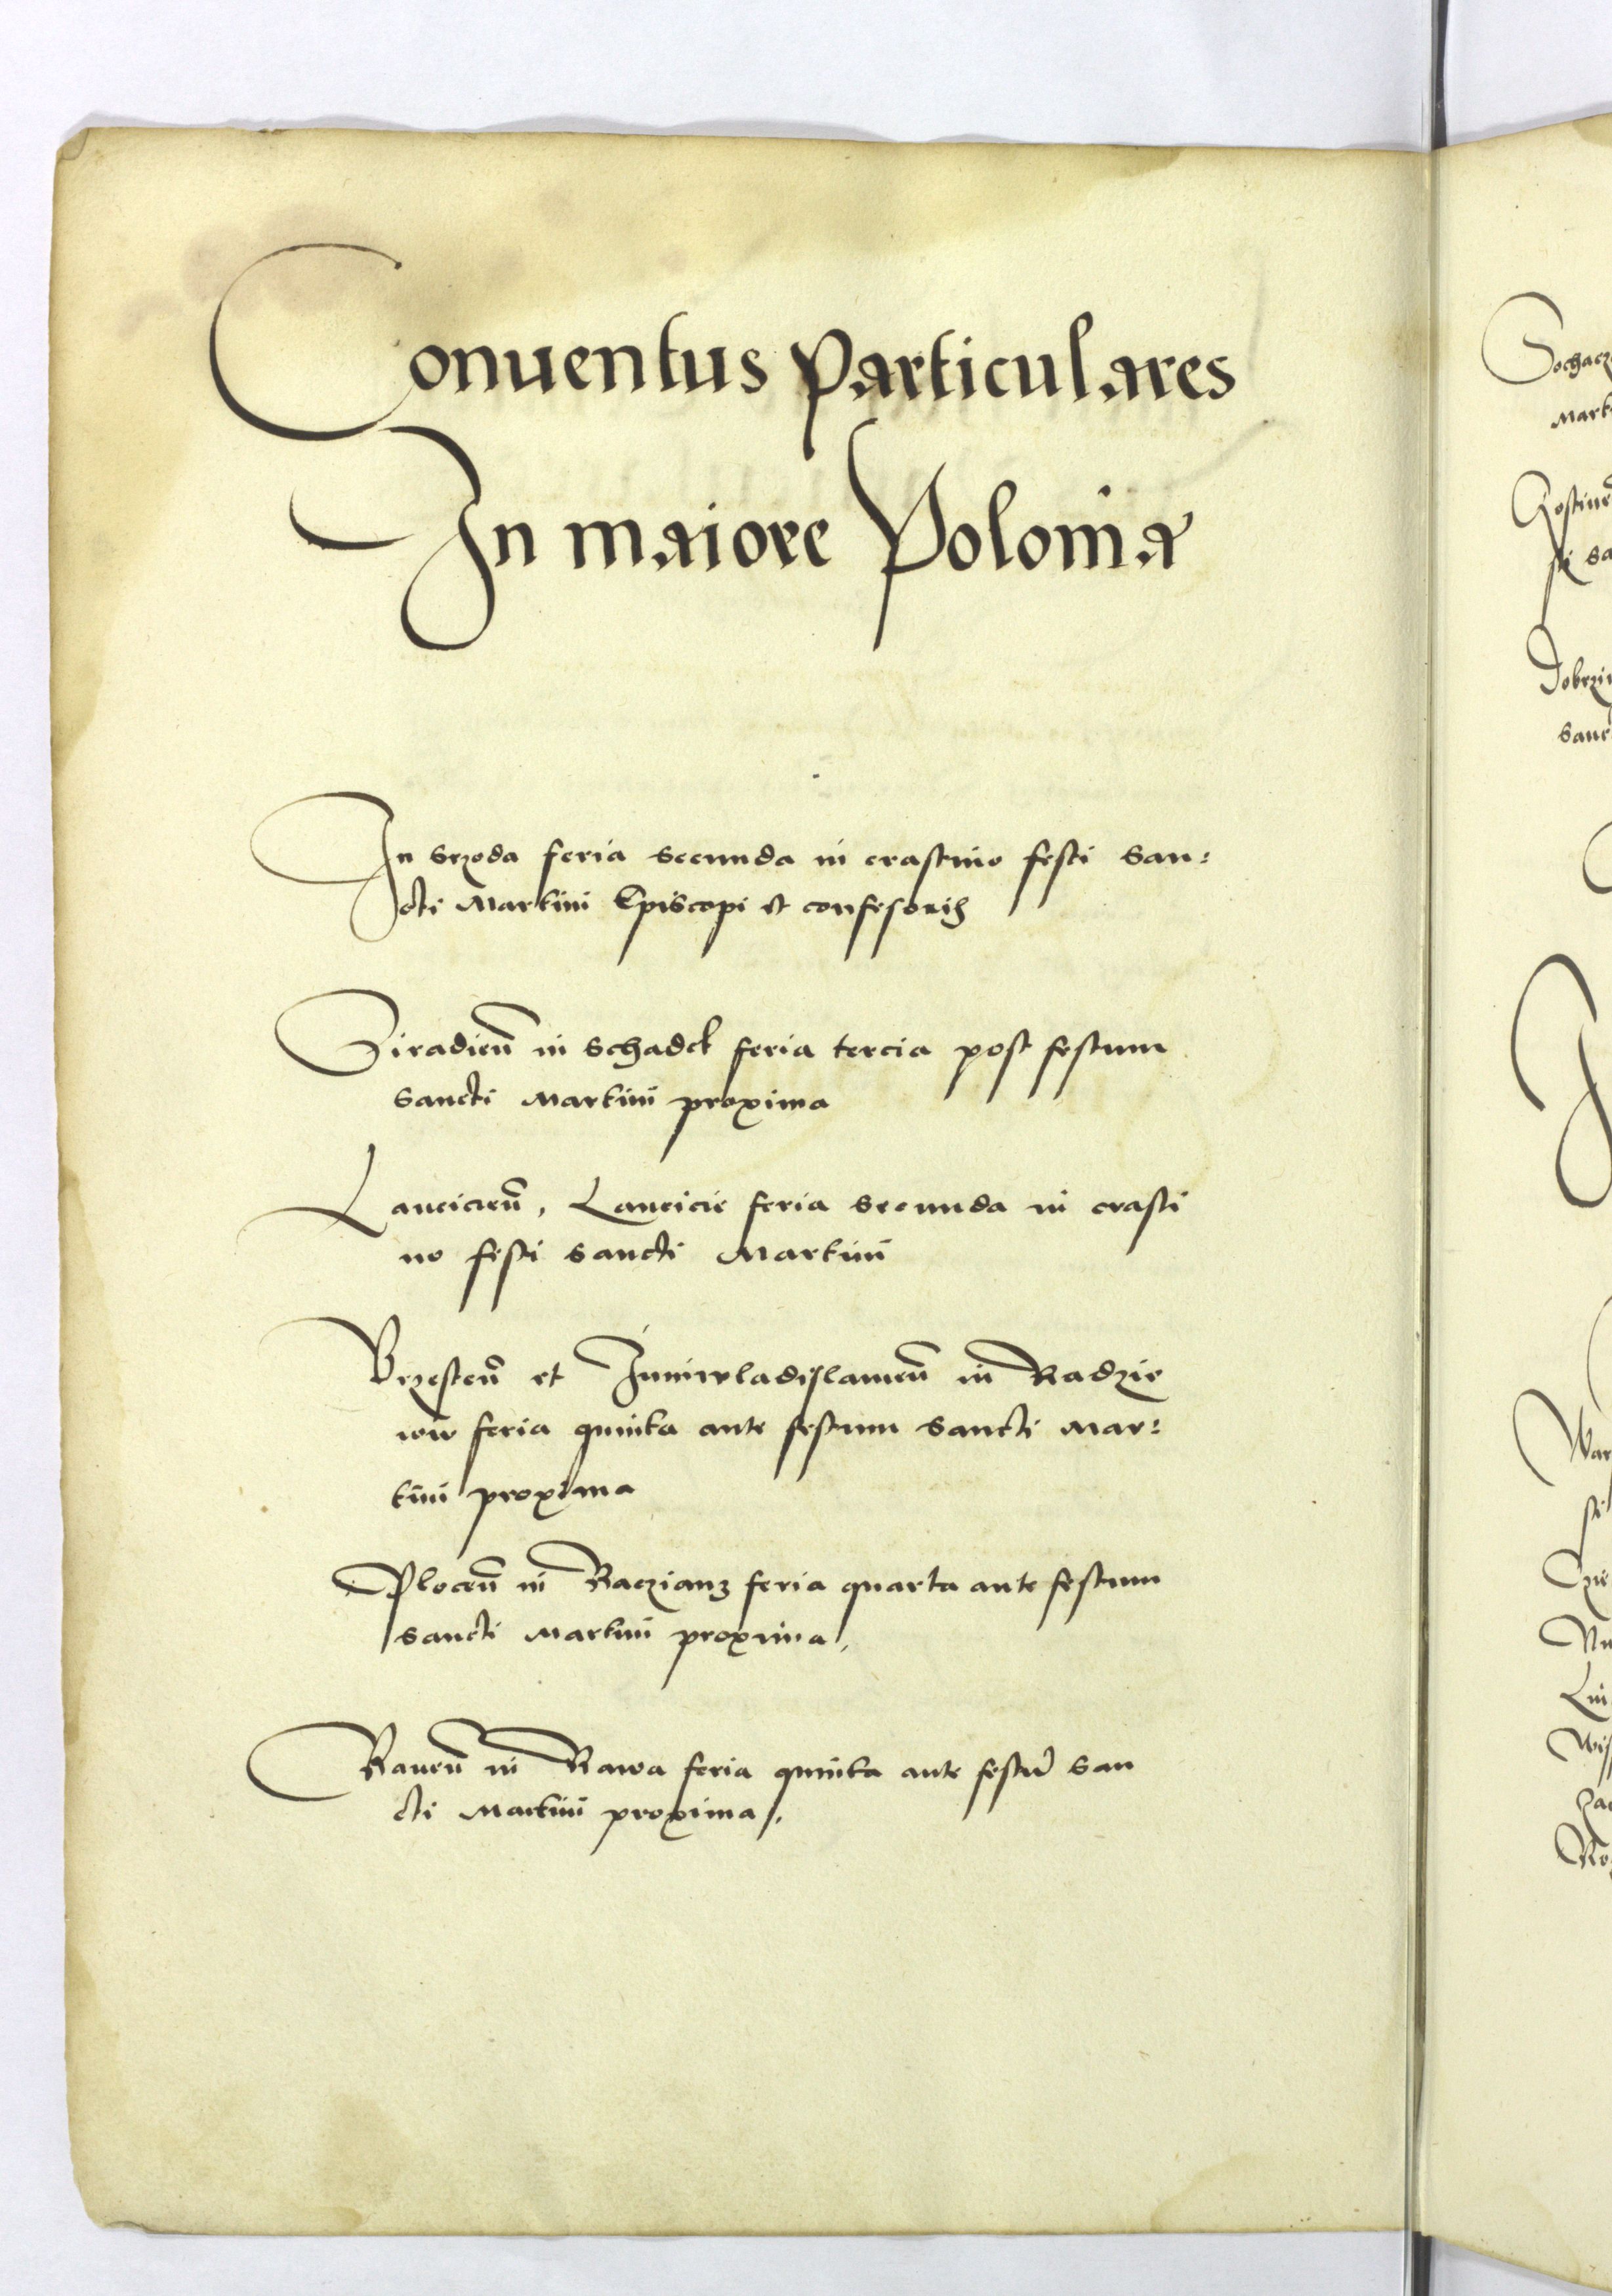 Conuentus particulares
In maiore Polonia
In Srzoda feria secunda in crastino festi San:
cti Martini Episcopi et confessoris
Siradien̄ in Schadek feria tercia post festum
Sancti Martini proxima
Lancicien̄, Lancicie feria secunda in crasti
no festi Sancti Martini
Brzesten̄ et Iuniwladislauien̄ in Radzie
iow feria quinta ante festum Sancti Mar:
tini proxima
Plocen̄ in Raczianz feria quarta ante festum
Sancti Martini proxima,
Rauen̄ in Rawa feria quinta ante festū San
cti Martini proxima,
Sochacz
Mart
Gostinen̄
sti Sa
Dobrzin
Sanc
War
sti
Czie
Nu
Liu
Wiss
Zac
Ro